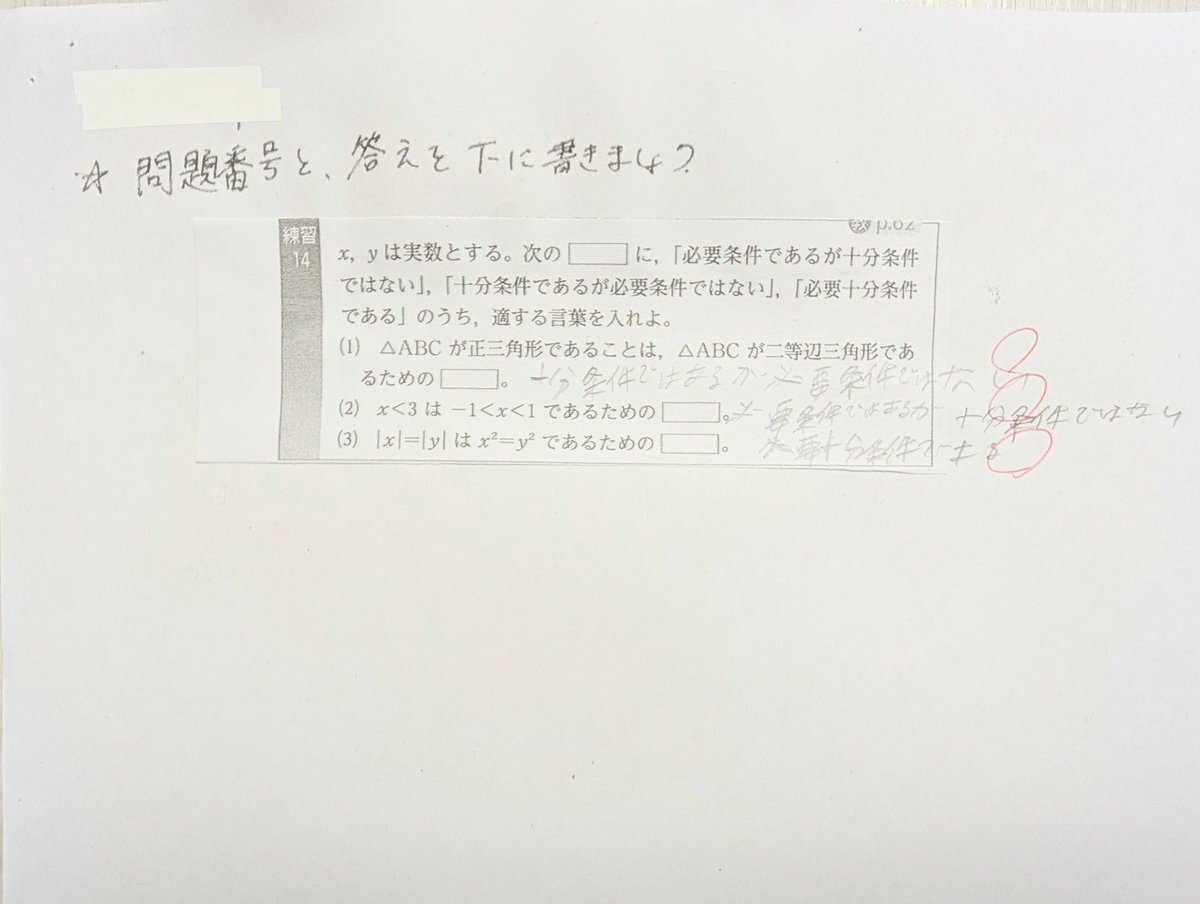 ☆ 問題番号と、答えを下に書きましょう
教 p.62
練習
14
x, y は実数とする。次の に,「必要条件であるが十分条件
ではない」,「十分条件であるが必要条件ではない」,「必要十分条件
である」のうち,適する言葉を入れよ。
(1) △ABC が正三角形であることは,△ABC が二等辺三角形であ
るための 。 十分条件ではあるが必要条件ではない
(2) x<3 は −1<x<1 であるための 。必要条件ではあるが 十分条件ではない
(3) |x|=|y| は x²=y² であるための 。 必要十分条件である